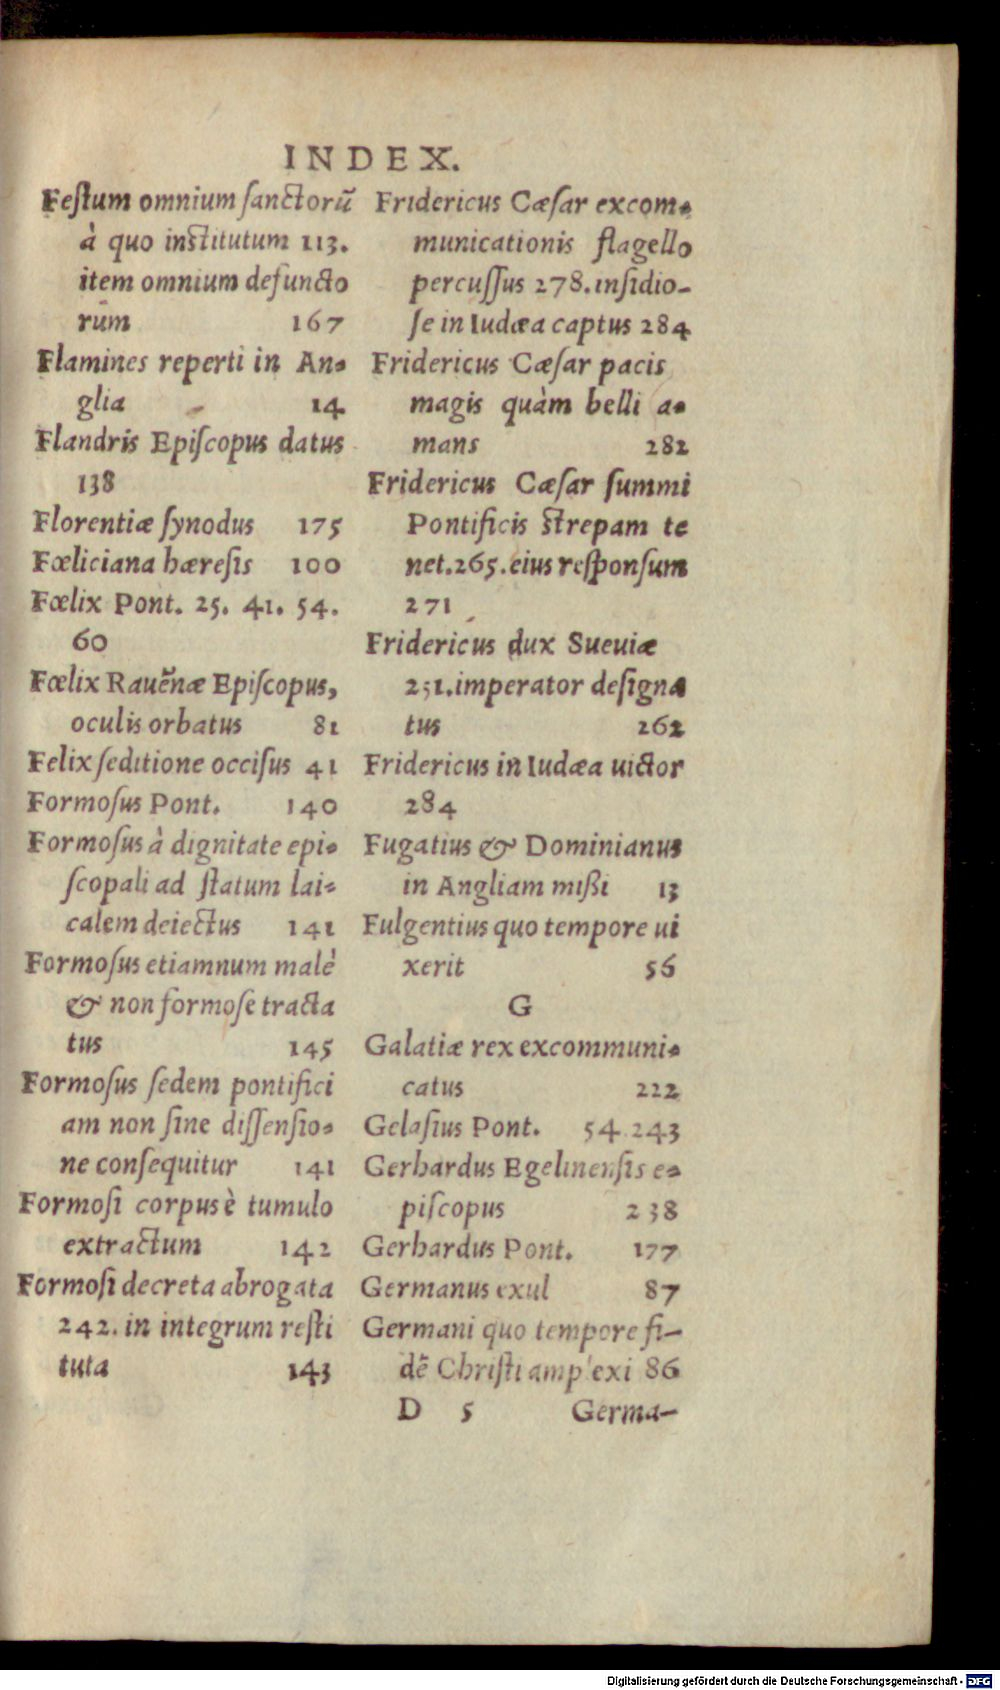 INDEX.
Feſtum omnium ſanctorũ
à quo inſtitutum 113.
item omnium defuncto
rum 167
Flamines reperti in An-
glia 14
Flandris Epiſcopus datus
138
Florentiæ ſynodus 175
Fœliciana hæreſis 100
Fœlix Pont. 25. 41. 54.
60
Fœlix Rauẽnæ Epiſcopus,
oculis orbatus 81
Felix ſeditione occiſus 41
Formoſus Pont. 140
Formoſus à dignitate epi-
ſcopali ad ſtatum lai-
calem deiectus 141
Formoſus etiamnum malè
& non formoſe tracta
tus 145
Formoſus ſedem pontifici
am non ſine diſſenſio-
ne conſequitur 141
Formoſi corpus è tumulo
extractum 142
Formoſi decreta abrogata
242. in integrum reſti
tuta 143
Fridericus Cæſar excom-
municationis flagello
percuſſus 278. inſidio-
ſe in Iudæa captus 284
Fridericus Cæſar pacis
magis quàm belli a-
mans 282
Fridericus Cæſar ſummi
Pontificis ſtrepam te
net. 265. eius reſponſum
271
Fridericus dux Sueuiæ
251. imperator deſigna
tus 262
Fridericus in Iudæa uictor
284
Fugatius & Dominianus
in Angliam mißi 13
Fulgentius quo tempore ui
xerit 56
G
Galatiæ rex excommuni-
catus 222
Gelaſius Pont. 54. 243
Gerhardus Egelinenſis e-
piſcopus 238
Gerhardus Pont. 177
Germanus exul 87
Germani quo tempore fi-
dẽ Chriſti amp'exi 86
D 5 Germa-
Digitalisierung gefördert durch die Deutsche Forschungsgemeinschaft - DFG